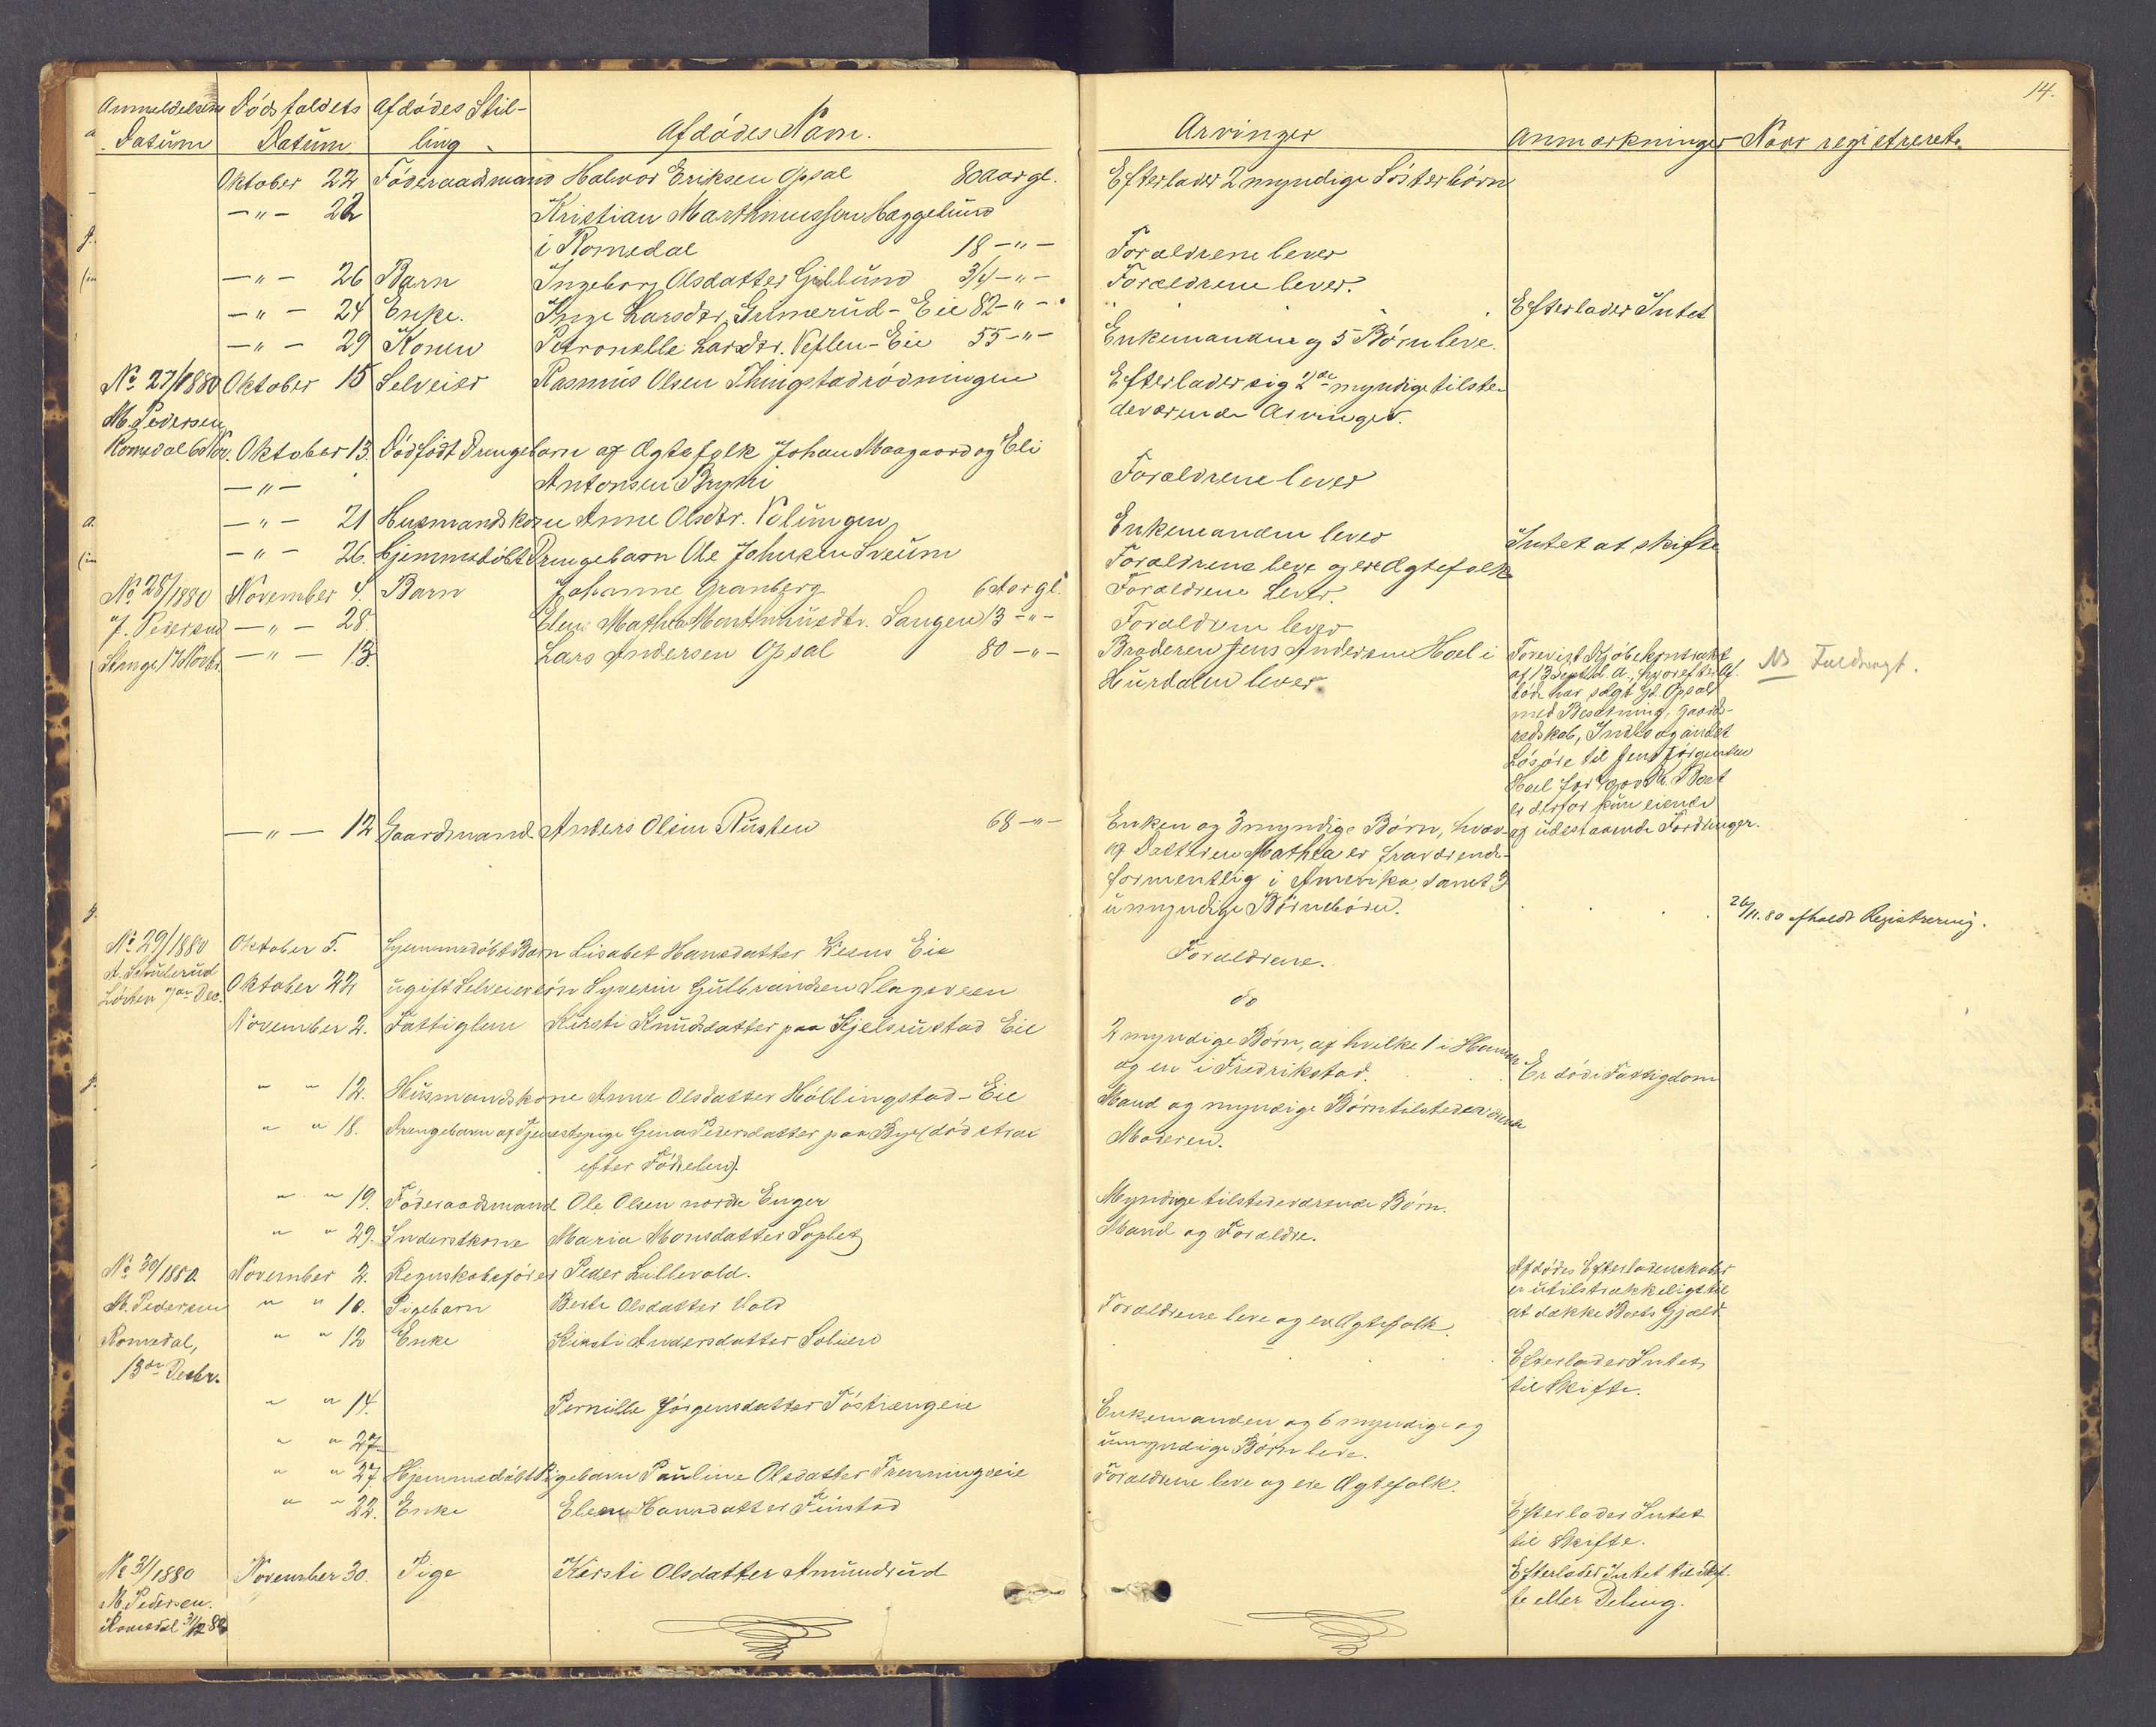 14.
Anmeldelsens Dødsfaldets Afdødes Stil-
Datum Datum ling Afdødes Navn. Arvinger Anmærkninger Naar registreret.
Oktober 22 Føderaadsmand Halvor Eriksen Opsal 80 aar gl. Efterlader 2 myndige Søsterbørn
—"— 22 Kristian Marthinussen Hæggelund
i Romedal 18 —"— Forældrene lever
—"— 26 Barn Ingeborg Olsdatter Gillund 3/4 —"— Forældrene lever.
—"— 24 Enke. Inge Larsdtr. Grimerud-Eie 82 —"— Efterlader Intet
—"— 29 Konen Petronelle Larsdtr. Veflen-Eie 55 —"— Enkemanden og 5 Børn leve.
No 27/1880 Oktober 15 Selveier Rasmus Olsen Thingstadrødningen Efterlader sig 2de myndige tilste-
M. Pedersen deværende Arvinger.
Romedal 6 Nov. Oktober 13. Dødfødt Drengebarn af Ægtefolk Johan Maagaard og Eli
—"— Antonsen Bryni Forældrene lever
—"— 21 Husmandskone Anne Olsdtr. Volungen Enkemanden lever Intet at skifte
—"— 26. Hjemmedøbt Drengebarn Ole Johnsen Sveum Forældrene leve og ere Ægtefolk
No 28/1880 November 4. Barn Johanne Granberg 6 Aar gl. Forældrene Lever.
J. Pedersen —"— 28. Elen Mathea Monthinusdtr. Sangen 13 —"— Forældrene lever
Stange 17 Novbr. —"— 13. Lars Andersen Opsal 80 —"— Broderen Jens Andersen Hoel i
Hurdalen lever
Forevist Kjøbekontrakt
af 13 Septbr. d. A., hvorefter Af-
døde har solgt Gd. Opsal
med Besætning, Gaards-
redskab, Indbo og andet
Løsøre til Jens Jørgensen
Hoel for Kr. Boet
er derfor kun eiende
af udestaaende Fordringer.
NB Fuldmagt.
—"— 12 Gaardmand Anders Olsen Rusten 68 —"— Enken og 3 myndige Børn, hvor-
af Datteren Mathea er fraværende
formentlig i Amerika, samt 3
umyndige Børnebørn. 26/11.80 afholdt Registrering.
No 29/1880 Oktober 5. Hjemmedøbt Barn Lisabet Hansdatter Viesus Eie Forældrene.
A. Schulerud
Løiten Dec. Oktober 22 ugift Selveiersøn Syverin Gulbrandsen Slagsveen do
November 2. Fattiglem Kirsti Knudsdatter paa Kjelsrustad Eie 2 myndige Børn, af hvilke 1 i Hamar
og en i Fredrikstad. Er død i Fattigdom
" " 12. Husmandskone Anne Olsdatter Høllingstad-Eie Mand og myndige Børn tilstedeværende
" " 18. Drengebarn af Tjenestepige Gina Pedersdatter paa Bye (død strax Moderen.
efter Fødselen).
" " 19. Føderaadsmand Ole Olsen nordre Enger Myndige tilstedeværende Børn.
" " 29. Inderstkone Maria Monsdatter Soplet Mand og Forældre.
No 30/1880. November 2. Regnskabsfører Peder Lillevold. Afdødes Efterladenskaber
er utilstrækkeligt til
at dække Boets Gjæld
M. Pedersen " " 10. Pigebarn Berte Olsdatter Vold Forældrene leve og er Ægtefolk.
Romedal, " " 12 Enke Kirsti Andersdatter Solien Efterlader Intet
13de Decbr. til Skifte.
" " 14. Pernille Jørgensdatter Tøstrængeie Enkemanden og 6 myndige og
" " 27 umyndige Børn leve.
" " 27. Hjemmedøbt Pigebarn Pauline Olsdatter Fremningseie Forældrene leve og ere Ægtefolk.
" " 22. Enke Elen Hansdatter Finstad Efterlader Intet
til Skifte.
No 31/1880 November 30. Pige Kirsti Olsdatter Amundrud Efterlader Intet til Skif-
M. Pedersen. te eller Deling.
Romedal 3/12 80